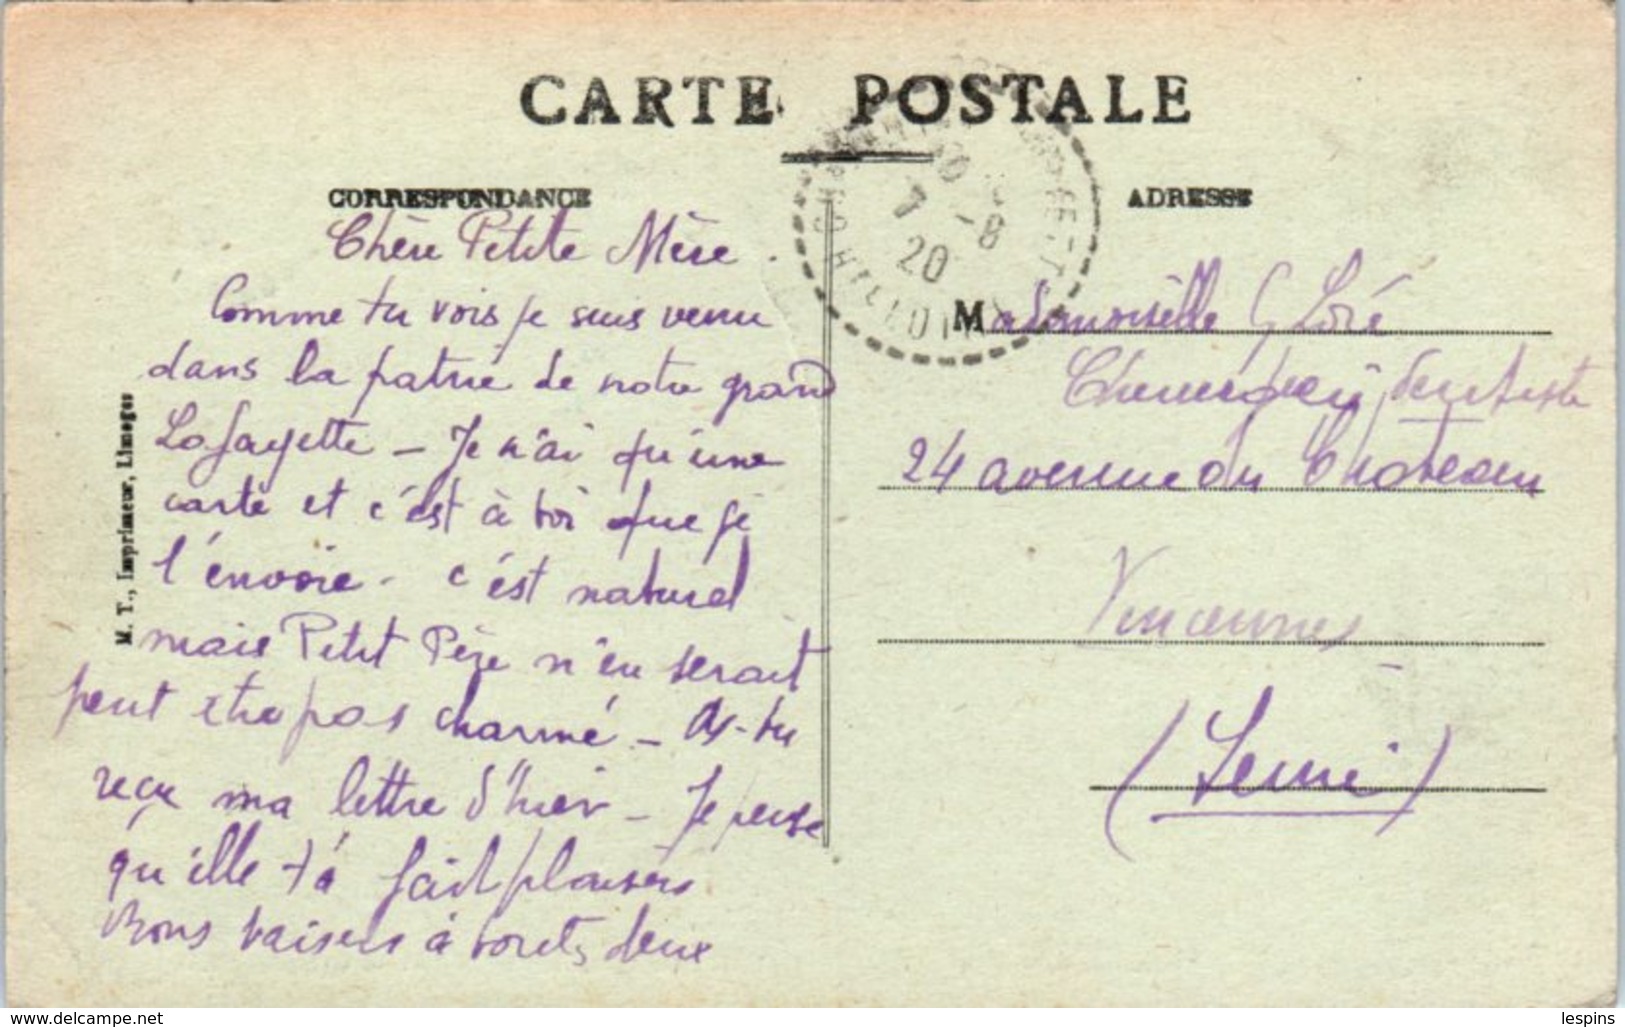 CARTE POSTALE
CORRESPONDANCE
Chère Petite Mère.
Comme tu vois je suis venu
dans la patrie de notre grand
Lafayette – Je n'ai qu'une
carte et c'est à toi que je
l'envoie. c'est naturel
mais Petit Père n'en serait
peut etre pas charmé – As-tu
reçu ma lettre d'hier – Je pense
qu'elle t'a fait plaisirs
Bons baisers à vous deux
M. T., Imprimeur, Limoges
7 -8
20
ADRESSE
Mademoiselle G Loré
Chirurgien dentiste
24 avenue du Château
Vincennes
(Seine)
lespins
www.delcampe.net